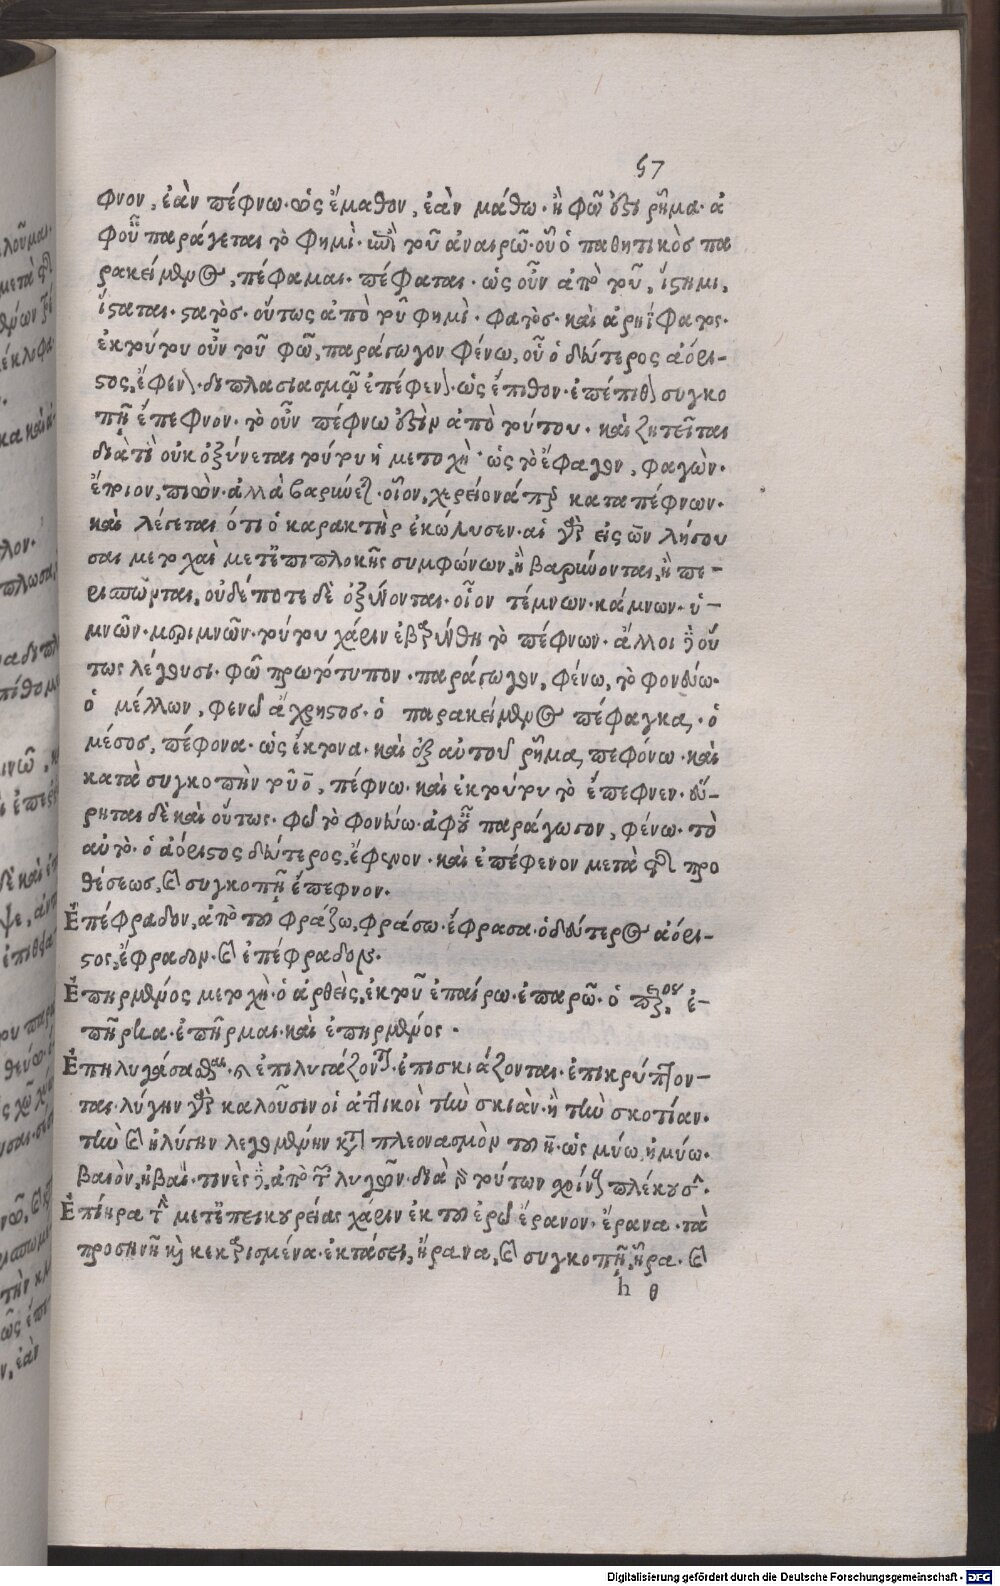 57
φνον, ἐὰν πέφνω· ὡς ἔμαθον, ἐὰν μάθω· ἢ φῶ ἐστι ῥῆμα· ἀ
φοῦ παράγεται τὸ φημὶ· ἐπὶ τοῦ ἀναιρῶ· οὗ ὁ παθητικὸς πα
ρακείμενος, πέφαμαι· πέφαται· ὡς οὖν ἀπὸ τοῦ, ἵστημι,
ἵσταται· στατὸς· οὕτως ἀπὸ τοῦ φημὶ· φατὸς· καὶ ἀρηΐφατος·
ἐκ τούτου οὖν τοῦ φῶ, παράγωγον φένω, οὗ ὁ δεύτερος ἀόρι-
στος, ἔφενον· διπλασιασμῷ ἐπέφενον· ὡς ἔπιθον· ἐπέπιθον συγκο
πῇ ἔπεφνον· τὸ οὖν πέφνω ἐστὶν ἀπὸ τούτου· καὶ ζητεῖται
διὰτὶ οὐκ ὀξύνεται τούτου ἡ μετοχὴ· ὡς τὸ ἔφαγον, φαγὼν·
ἔπιον, πιὼν· ἀλλὰ βαρύνεται· οἷον, καταπέφνων·
καὶ λέγεται ὅτι ὁ χαρακτὴρ ἐκώλυσεν· αἱ γὰρ εἰς ων λήγου
σαι μετοχαὶ μετὰ ἐπιπλοκῆς συμφώνων, ἢ βαρύνονται, ἢ πε-
ρισπῶνται, οὐδέποτε δὲ ὀξύνονται· οἷον τέμνων· κάμνων· ὑ-
μνῶν· μεριμνῶν· τούτου χάριν ἐβαρύνθη τὸ πέφνων· ἄλλοι δὲ οὕ
τως λέγουσι· φῶ πρωτότυπον· παράγωγον, φένω, τὸ φονεύω·
ὁ μέλλων, φενῶ ἄχρηστος· ὁ παρακείμενος πέφαγκα, ὁ
μέσος, πέφονα· ὡς ἔκτονα· καὶ ἐξ αὐτοῦ ῥῆμα, πεφόνω· καὶ
κατὰ συγκοπὴν τοῦ ο, πέφνω· καὶ ἐκ τούτου τὸ ἔπεφνεν· εὕ-
ρηται δὲ καὶ οὕτως· φῶ τὸ φονεύω· ἀφοῦ παράγωγον, φένω· τὸ
αὐτὸ· ὁ ἀόριστος δεύτερος, ἔφενον· καὶ ἐπέφενον μετὰ τῆς προ
θέσεως, καὶ συγκοπῇ ἔπεφνον.
Ἐπέφραδον, ἀπὸ τοῦ φράζω, φράσω· ἔφρασα· ὁ δεύτερος ἀόρι-
στος, ἔφραδον· καὶ ἐπέφραδον·
Ἐπηρμένος μετοχὴ· ὁ ἀρθεὶς, ἐκ τοῦ ἐπαίρω· ἐπαρῶ· ὁ ἐ-
πῆρκα· ἐπῆρμαι· καὶ ἐπηρμένος·
Ἐπηλυγάσασθαι· ἐπισκιάζονται· ἐπικρύπτον-
ται· λύγην γὰρ καλοῦσιν οἱ ἀττικοὶ τὴν σκιὰν· ἢ τὴν σκοτίαν·
τὴν καὶ ἠλύγην λεγομένην κατὰ πλεονασμὸν τοῦ η· ὡς μύω, ἠμύω·
βαιὸν, ἠβαιόν· τινὲς δὲ, ἀπὸ τῶν λυγῶν· διὰ γὰρ τούτων πλέκουσι·
Ἐπίηρα τὴν μετ' ἐπικουρείας χάριν ἐκ τοῦ ἐρῶ ἔρανον· ἔρανα· τὰ
προσηνῆ καὶ κεχαρισμένα· ἐκτάσει, ἤρανα, καὶ συγκοπῇ, ἦρα· καὶ
h θ
Digitalisierung gefördert durch die Deutsche Forschungsgemeinschaft - DFG